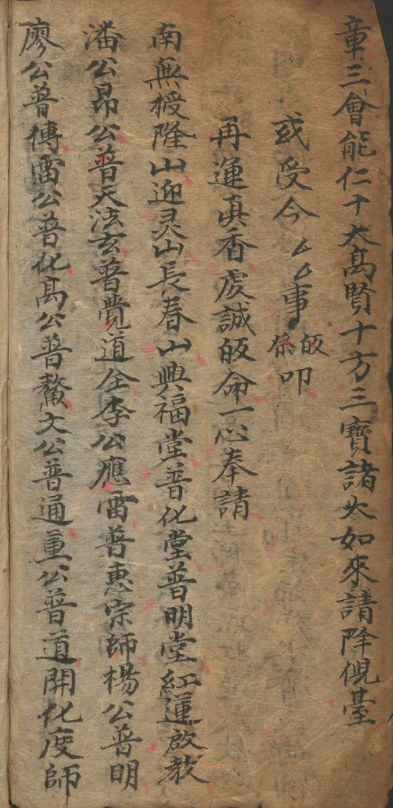 章三會能仁十大高賢十方三寶諸大如來請降俔臺
或受今厶厶事
皈
條叩
再運眞香虔誠皈命一心奉請
南無椴隆山迎灵山長春山興福堂普化堂普明堂紅蓮啟教
潘公昂公普天法玄普覺道全李公應雷普惠宗師楊公普明
廖公普傳雷公普化高公普鰲文公普通董公普道開化度師